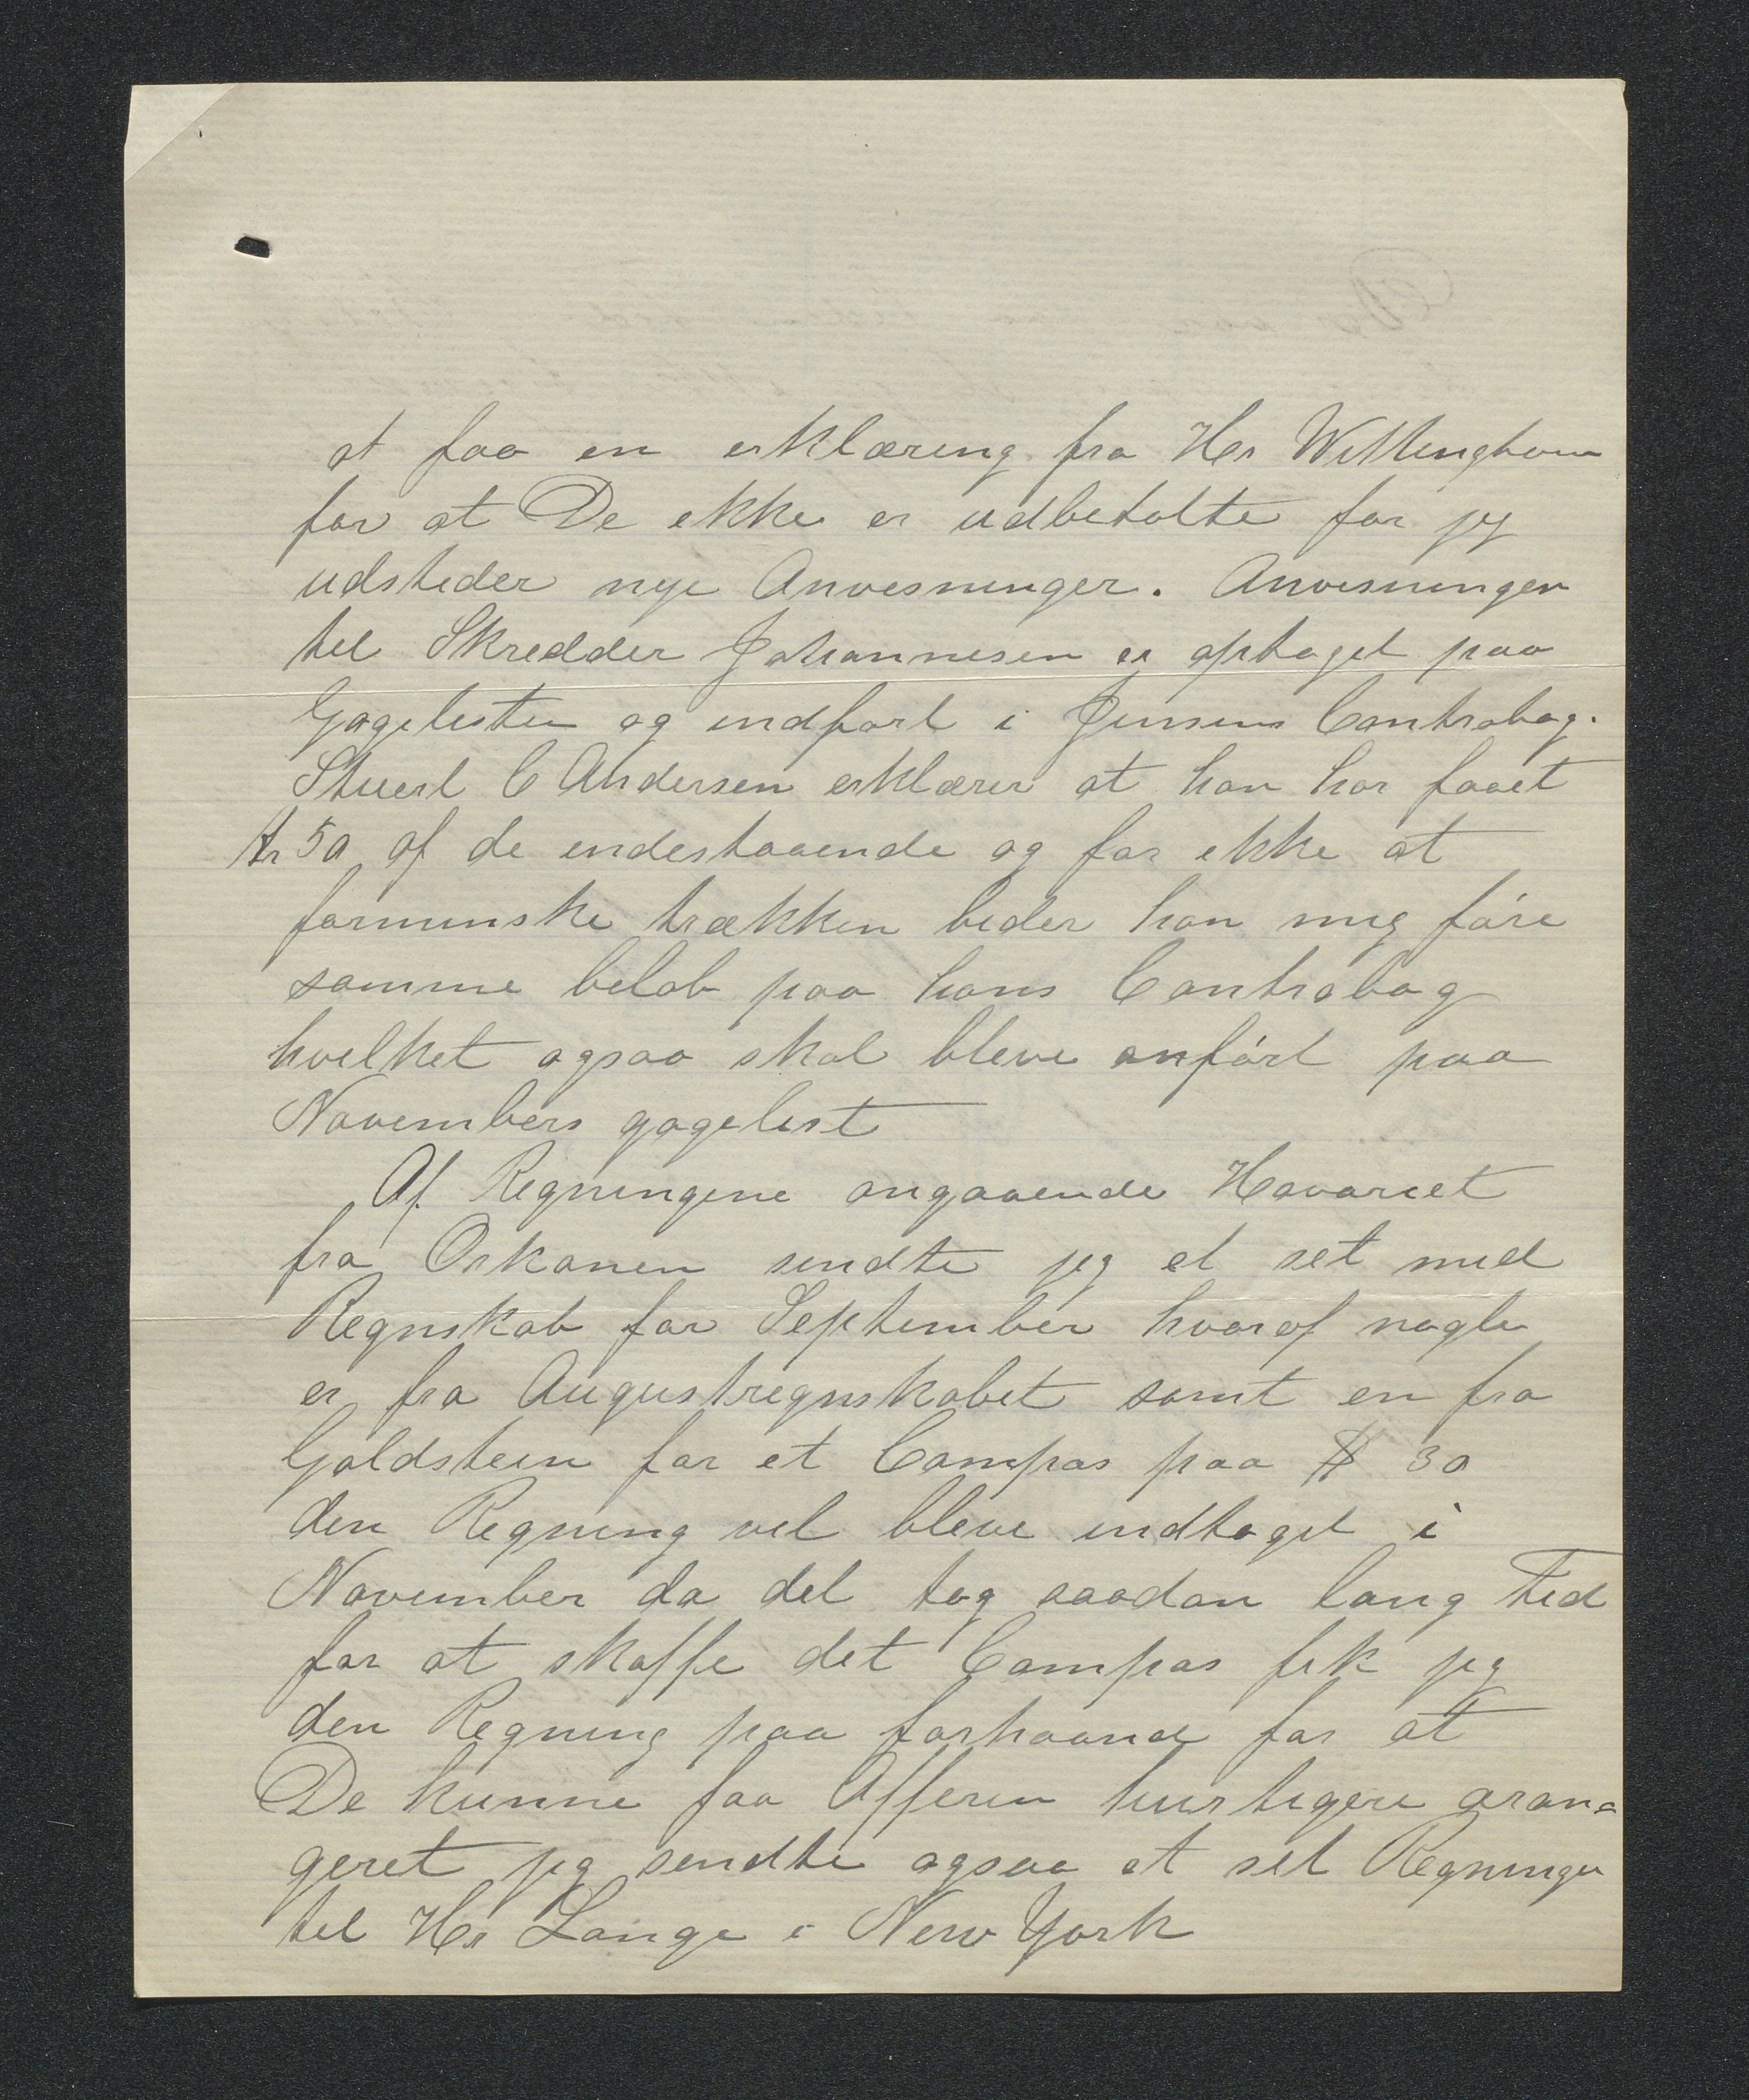 at faa en erklæring fra Hr Wittinghom
for at De ikke er udbetalte før jeg
udsteder nye Anvisninger. Anvisningen
til Skredder Johannesen er optaget paa
Gagelisten og indført i Jensens Contrabog.
Stuert C Andersen erklærer at han har faaet
kr 50 af de indestaaende og for ikke at
forminske trækken beder han mig føre
samme beløb paa hans Contrabog
hvilket ogsaa skal blive anført paa
Novembers gageliste
Af Regningene angaaende Havariet
fra Orkanen sendte jeg et set med
Regnskab for September hvoraf nogle
er fra Augustregnskabet samt en fra
Goldstein for et Compas paa $ 30
den Regning vil blive indtaget i
November da det tog saadan lang Tid
for at skaffe det Compas fik jeg
den Regning paa forhaand for at
De kunne faa Afferen hurtigere aran=
geret jeg sendte ogsaa et set Regninger
til Hr Lange i New York